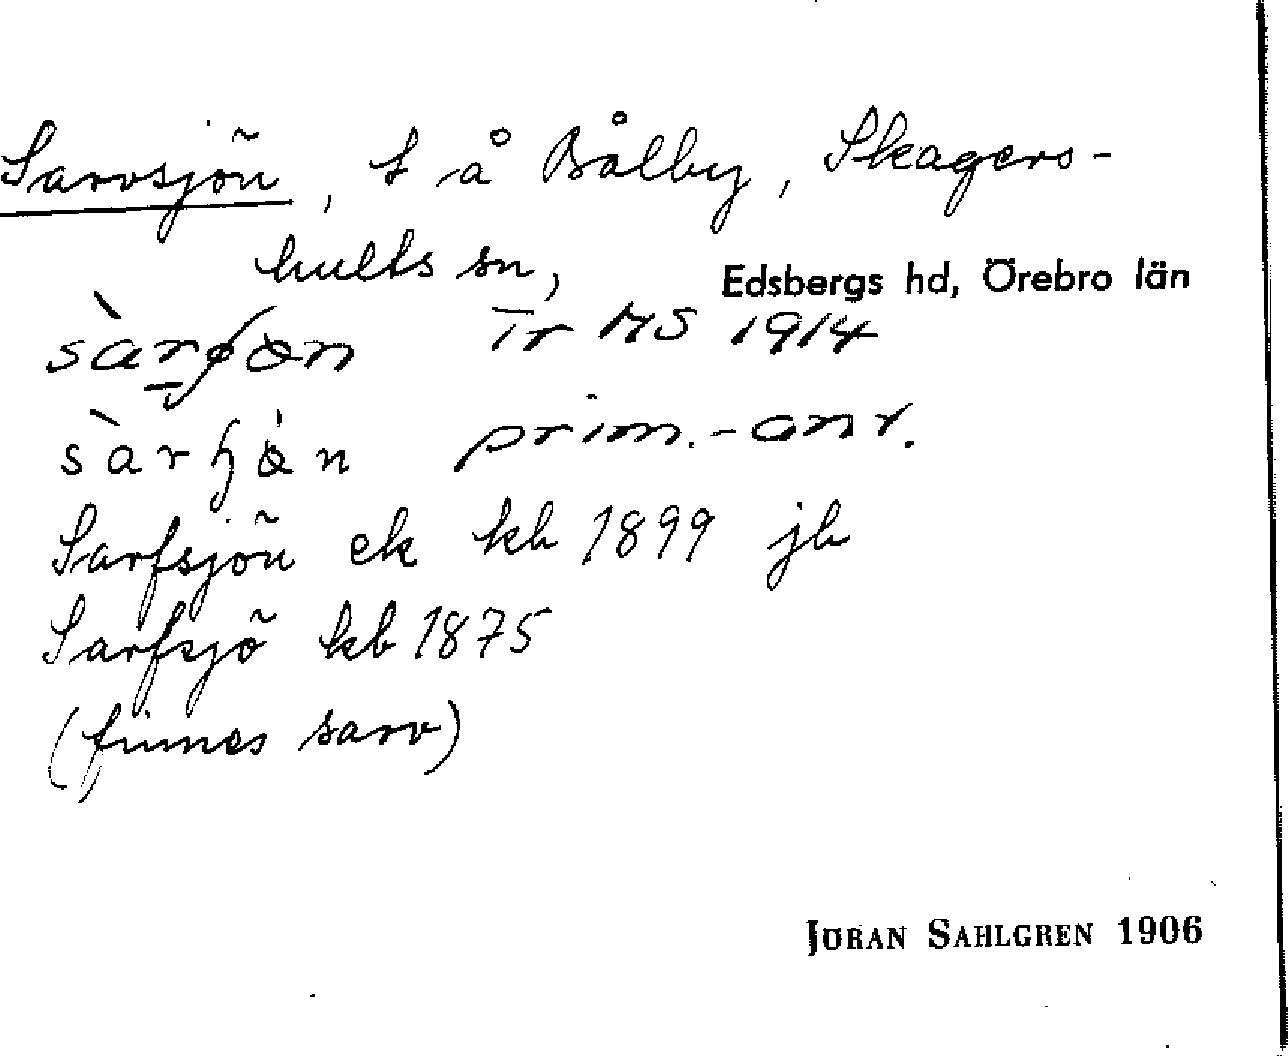 Sarvsjön, t å Bålby, Skagers-
hults sn, Edsbergs hd, Örebro län
Tr MS 1914
prim.-anr.
Sarfsjön ek kb 1899 jb
Sarfsjö kb 1875
(finnes sarv)
JÖRAN SAHLGREN 1906